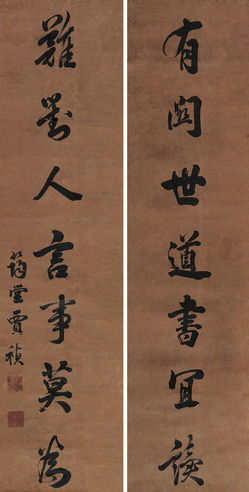 有関世道書宜讀
難對人言事莫為
筠堂賈楨